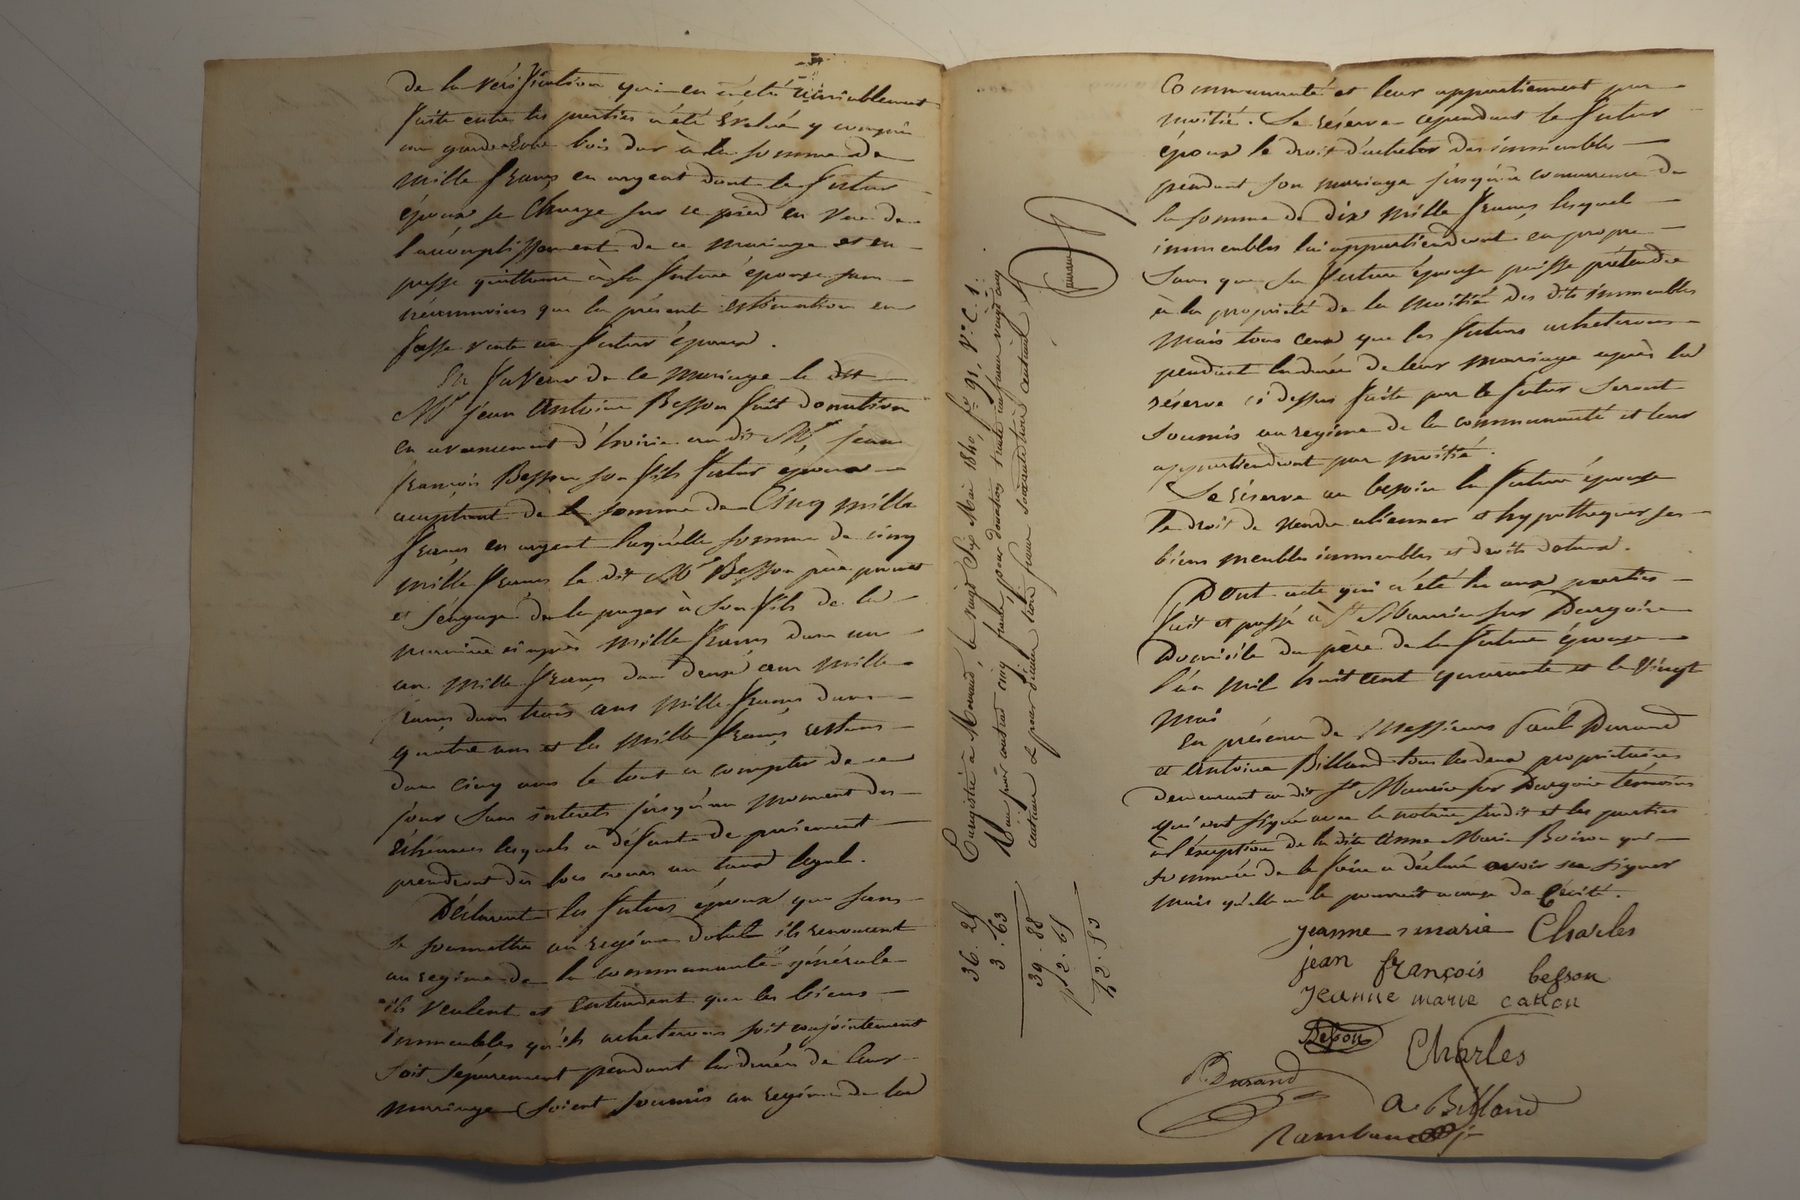 de la vérification qui en a été amiablement
faite entre les parties a été évalué y compris
une garderobe bois dur à la somme de
mille francs en argent dont le futur
époux se charge sur ce pied en vue de
laccomplissement de ce mariage et en
passe quittance à la future épouse sans
néanmoins que la présente estimation en
fasse vente au futur époux.
En faveur de ce mariage le dit
Mr jean Antoine Besson fait donation
en avancement d'hoirie au dit Mr jean
françois Besson son fils futur époux
acceptant de la somme de Cinq mille
francs en argent laquelle somme de cinq
mille francs le dit Mr Besson père promet
et s'engage de la payer à son fils de la
manière ci après mille francs dans un
an mille francs dans deux ans mille
francs dans trois ans mille francs dans
quatre ans et les mille francs restans
dans cinq ans le tout a compter de ce
jour sans interets jusqu'au moment des
échéances lesquels a défaut de paiement
prendront dès lors cours au taux légal.
Déclarent les futurs époux que sans
se soumettre au regime dotal ils renoncent
au regime de la communauté générale
ils veulent et entendent que les biens
immeubles qu'ils acheterons soit conjointement
soit séparement pendant la durée de leur
mariage soient soumis au regime de la
Enregistré à Mornand, le vingt six Mai 1840, fo 91, Vo C. 1.
Reçu pour contrat cinq francs, pour donation trente un francs vingt cinq
centimes et pour dixième trois francs soixante trois centimes
36. 25
3. 63
39. 88
12. 65
52. 53
Communauté et leur appartiennent par
moitié. Se réserve cependant le futur
époux le droit d'acheter des immeubles
pendant son mariage jusqu'a concurrence de
la somme de dix mille francs lesquels
immeubles lui appartiendront en propre
sans que sa future épouse puisse prétendre
à la propriété de la moitié des dits immeubles
mais tous ceux que les futurs acheterons
pendant la durée de leur mariage après la
réserve ci dessus faite par le futur seront
soumis au regime de la communauté et leur
appartiendront par moitié.
Se réserve au besoin la future épouse
le droit de vendre alienner et hypothequer ses
biens meubles immeubles et droits dotaux.
Dont acte qui a été lu aux parties
fait et passé à St Maurice sur Dargoire
Domicile du père de la future épouse
l'an mil huit cent quarante et le vingt
mai
En présence de Messieurs Paul Durand
et Antoine Billand tous les deux propriétaires
demeurant au dit St Maurice sur Dargoire temoins
qui ont signé avec le notaire susdit et les parties
a l'éxception de la dite Anne Marie Boiron qui
sommée de le faire a déclaré avoir su signer
mais qu'elle ne le pourrait a cause de cécité.
jeanne marie Charles
jean françois besson
jeanne marie catton
Besson
Charles
P. Durand
a Billand